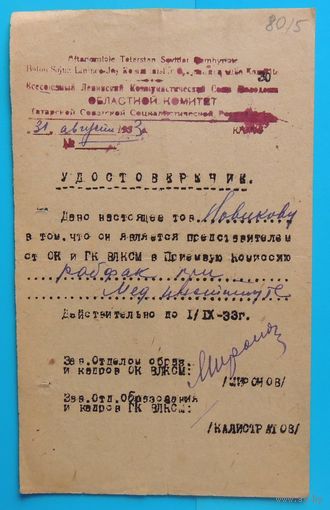 80/5
Всесоюзный Ленинский Коммунистический Союз Молодежи
ОБЛАСТНОЙ КОМИТЕТ
Татарской Советской Социалистической
31 августа 1933
№
УДОСТОВЕРЕНИЕ.
Дано настоящее тов. Новикову
в том, что он является представителем
от ОК и ГК ВЛКСМ в Приемную Комиссию
рабфак при
Мединституте
Действительно до 1/IX-33г.
Зав.Отделом образ.
и кадров ОК ВЛКСМ:
/МИРОНОВ/
Зав.Отд.Образования
и кадров ГК ВЛКСМ:
/КАЛИСТРАТОВ/